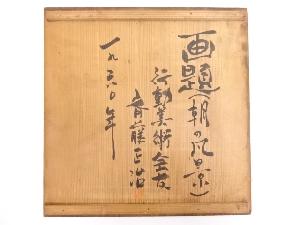 画題(朝の風景)
行動美術会友
斉藤正治
一九六〇年